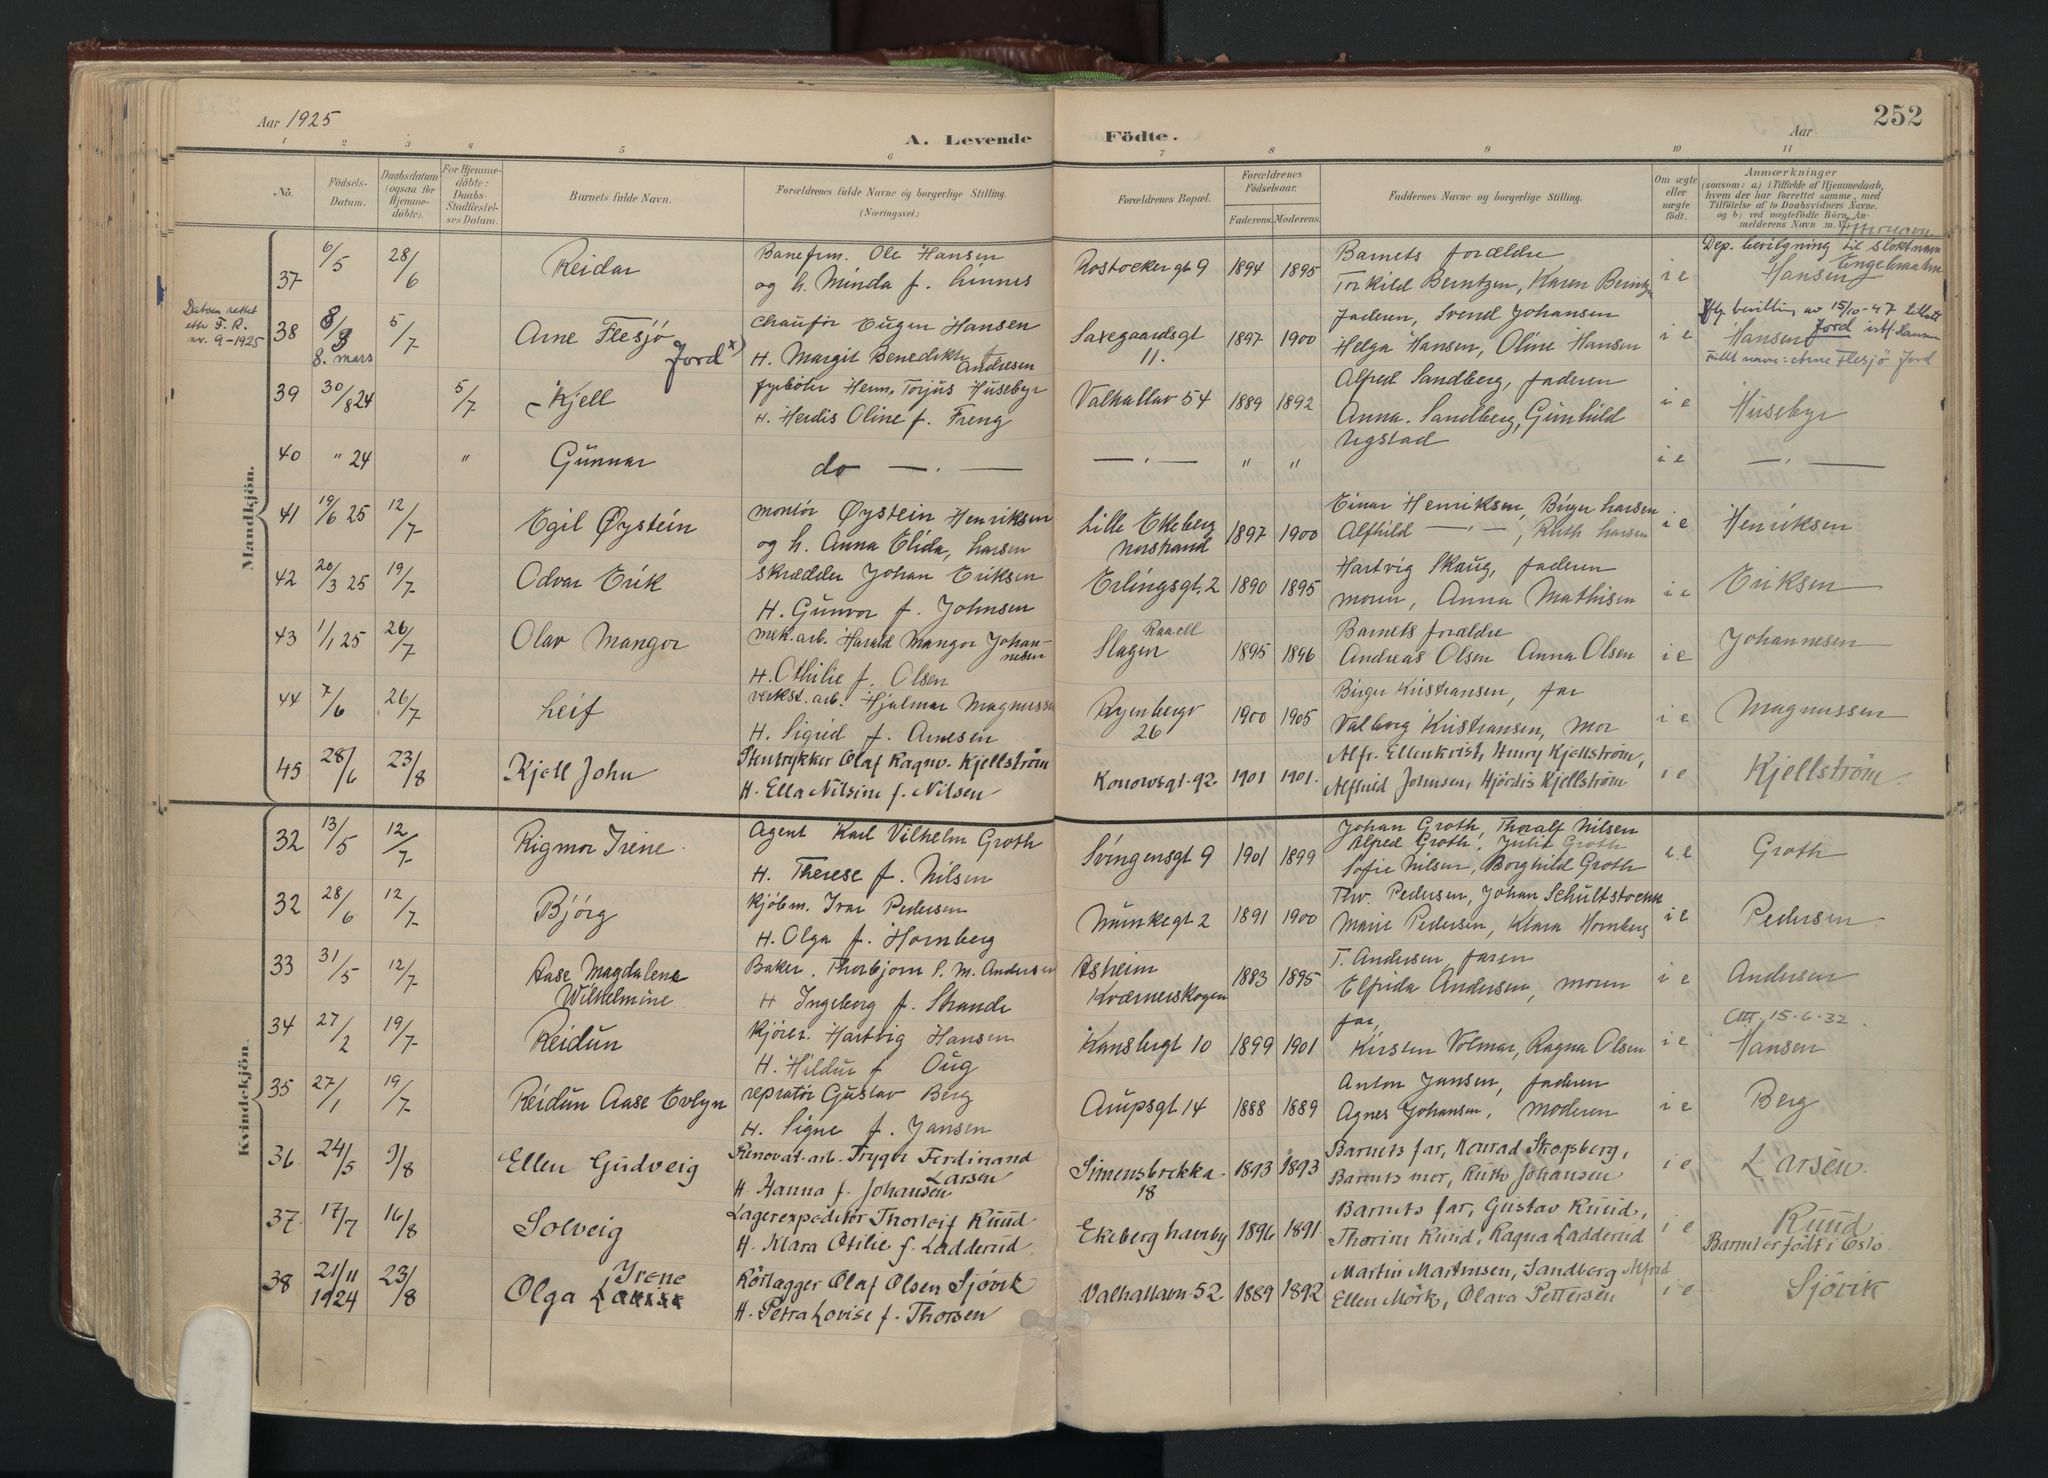 Aar 1925
A. Levende Födte.
Aar
252
1 2 3 4 5 6 7 8 9 10 11
No.
Födsels-Datum.
Daabsdatum (ogsaa for Hjemme-döbte).
For Hjemme-döbte: Daabs-Stadfæstel-ses Datum.
Barnets fulde Navn.
Forældrenes fulde Navne og borgerlige Stilling. (Næringsvei.)
Forældrenes Bopæl.
Forældrenes Födselsaar.
Faderens. Moderens.
Faddernes Navne og borgerlige Stilling.
Om ægte eller uægte födt.
Anmærkninger
(saasom: a) i Tilfælde af Hjemmedaab, hvem der har forrettet samme, med Tilföielse af to Daabsvidners Navne, og b) ved uægtefödte Börn, An-melderens Navn m. V.
Mandkjön.
37 6/5 28/6 Reidar Banefrm. Ole Hansen
og h. Minda f. Linnes
Rostockergt 9 1894 1895 Barnets forældre
Torkild Berntzen, Karen Berntzen
i e Dep. bevilgning til slektnavn
Hansen Engebraaten
Datoen rettet
etter F. R.
nr. 9-1925
38 8/3 8. mars 5/7 Arne Flesjö Jord x)
chauför Eugen Hansen
H. Margit Benedikte Andresen
Saxegaardsgt 11. 1897 1900 Faderen, Svend Johansen
Helga Hansen, Oline Hansen
i e Iflg. bevilling av 15/10-47 tillatt
Hansen Jord istf. Hansen
Fullt navn: Arne Flesjö Jord
39 30/8 24 5/7 Kjell fyrböter Herm. Torjus Huseby
H. Herdis Oline f. Freng
Valhallav 54 1889 1892 Alfred Sandberg, faderen
Anna Sandberg, Gunhild
Ugstad
i e Huseby
40 " 24 " Gunnar do — . — — . — " " i e — . —
41 19/6 25 12/7 Egil Øystein montör Øystein Henriksen
og h. Anna Elida, Larsen
Lille Ekeberg
Norstrand
1897 1900 Einar Henriksen, Birger Larsen
Alfhild — . — , Ruth Larsen
i e Henriksen
42 20/3 25 19/7 Odvar Erik skrædder Johan Eriksen
H. Gunvor f. Johnsen
Erlingsgt. 2 1890 1895 Hartvig Skaug, faderen
moren, Anna Mathisen
i e Eriksen
43 1/1 25 26/7 Olav Mangor mek. arb. Harald Mangor Johan-nesen
H. Othilie f. Olsen
Slagen 1895 1896 Barnets forældre
Andreas Olsen Anna Olsen
i e Johannesen
44 7/6 26/7 Leif verkst. arb. Hjalmar Magnussen
H. Sigrid f. Arnesen
Ryenbergv 26 1900 1905 Birger Kristiansen, far
Valborg Kristiansen, mor
i e Magnussen
45 28/6 23/8 Kjell John Stentrykker Olaf Ragnv. Kjellström
H. Ella Nilsine f. Nilsen
Konowsgt. 92 1901 1901. Alfr. Ellenkvist, Henry Kjellström,
Alfhild Johnsen, Hjördis Kjellström
i e Kjellström.
Kvindekjön.
32 13/5 12/7 Rigmor Irene. Agent Karl Vilhelm Groth
H. Therese f. Nilsen
Svingensgt 9 1901 1899 Johan Groth, Thoralf Nilsen
Alfred Groth, Julie Groth
Sofie Nilsen, Borghild Groth
i. e Groth
32 28/6 12/7 Björg kjöbm. Ivar Pedersen
H. Olga f. Hornberg
Munkegt 2 1891 1900 Thv. Pedersen, Johan Schultstocke
Marie Pedersen, Klara Hornberg
i e Pedersen
33 31/5 12/7 Aase Magdalene
Wilhelmine
Baker. Thorbjörn S. M. Andersen
H Ingeborg f. Strande
Asheim
Kværnerskogen
1883 1895 T. Andersen, faren
Elfrida Andersen, moren
i e Andersen
Att. 15.6.32.
34 27/2 19/7 Reidun Kjörer. Hartvig Hansen
H. Hildur f Oug
Kansbergt 10 1899 1901 far,
Kirsten Volmar, Ragna Olsen
i e Hansen
35 27/1 19/7 Reidun Aase Evlyn repratör Gustav Berg
H. Signe f. Jansen
Arupsgt 14 1888 1889 Anton Jansen, faderen
Agnes Johansen, moderen
i e Berg
36 24/5 9/8 Ellen Gudveig Renovat. arb. Trygve Ferdinand Larsen
H Hanna f. Johansen
Simensbrekka 18 1893 1893 Barnets far, Konrad Skogsberg,
Barnets mor, Ruth Johansen
i e Larsen.
37. 17/7 16/8 Solveig Lagerexpeditör Thorleif Ruud
H. Klara Otilie f. Ladderud.
Ekeberg haveby 1896 1891 Barnets far, Gustav Ruud,
Thorine Ruud, Ragna Ladderud
i e Ruud
Barnet er födt i Oslo.
38 21/11 1924 23/8 Olga Irene Rörlægger Olaf Olsen Sjövik
H. Petra Lovise f. Thorsen
Valhallavn 52 1889 1892 Martin Martinsen, Sandberg Alfred
Ellen Mörk, Olava Pettersen
i e Sjövik